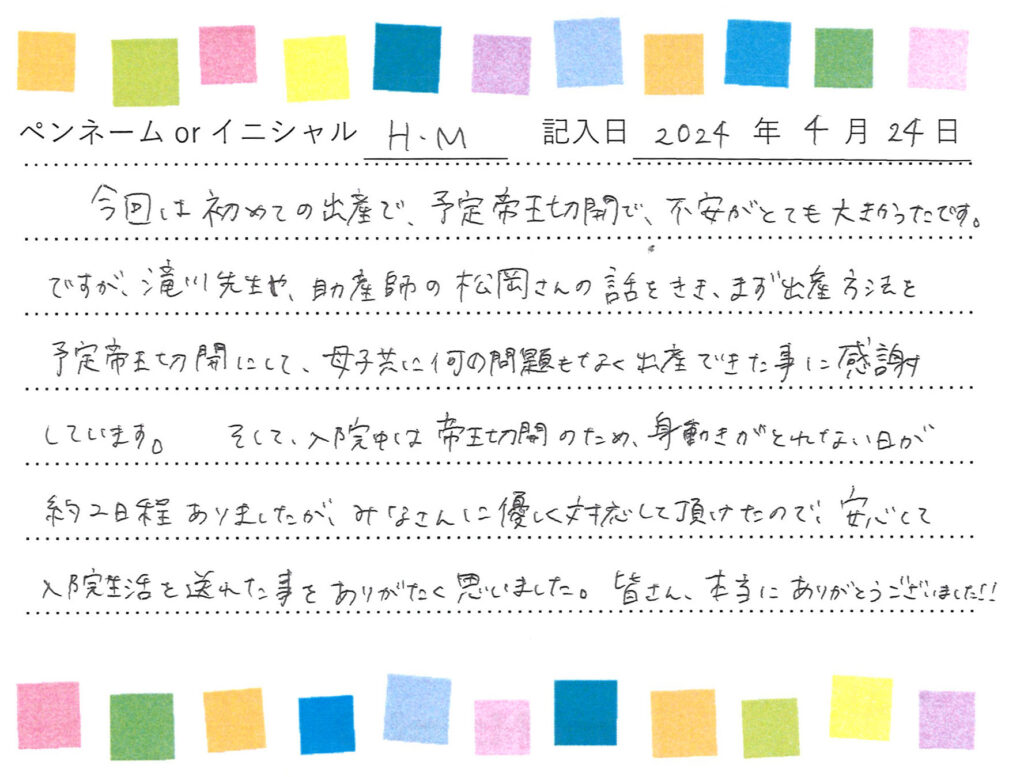 ペンネーム or イニシャル H・M 記入日 2024 年 4 月 24 日
今回は初めての出産で、予定帝王切開で、不安がとても大きかったです。
ですが、滝川先生や、助産師の松岡さんの話をきき、まず出産方法を
予定帝王切開にして、母子共に何の問題もなく出産できた事に感謝
しています。 そして、入院中は帝王切開のため、身動きがとれない日が
約2日程ありましたが、みなさんに優しく対応して頂けたので、安心して
入院生活を送れた事をありがたく思いました。皆さん、本当にありがとうございました!!